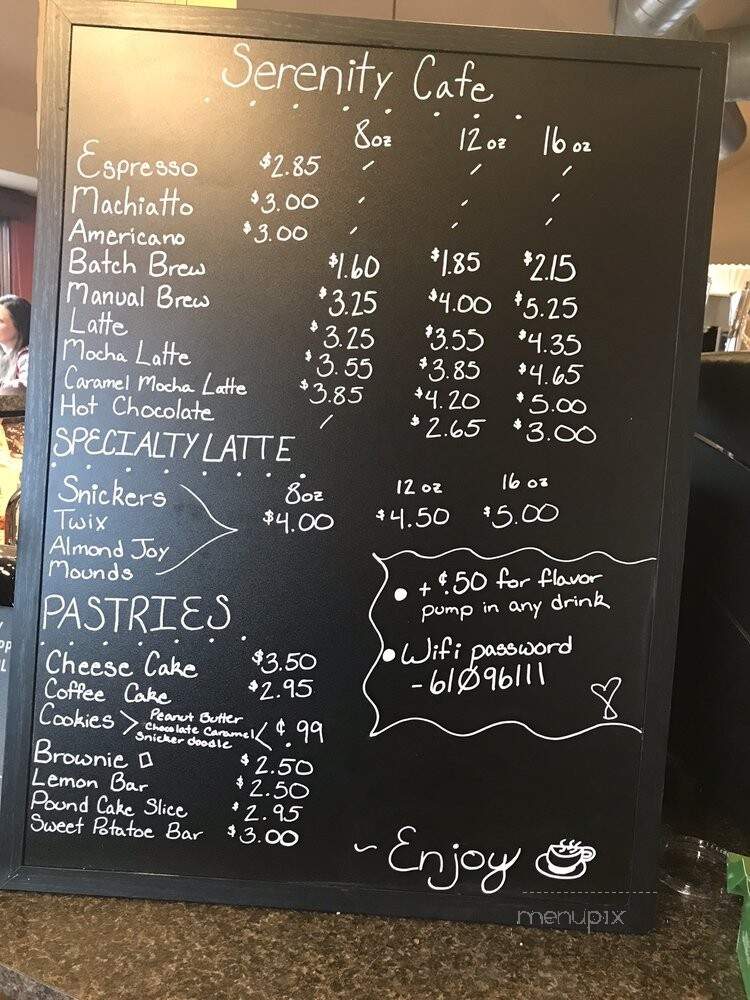 Serenity Cafe
8oz 12 oz 16 oz
Espresso $2.85 / / /
Machiatto $3.00 / / /
Americano $3.00 / / /
Batch Brew $1.60 $1.85 $2.15
Manual Brew $3.25 $4.00 $5.25
Latte $3.25 $3.55 $4.35
Mocha Latte $3.55 $3.85 $4.65
Caramel Mocha Latte $3.85 $4.20 $5.00
Hot Chocolate / $2.65 $3.00
SPECIALTY LATTE
8oz 12 oz 16 oz
Snickers
Twix $4.00 $4.50 $5.00
Almond Joy
Mounds
+ ¢.50 for flavor
pump in any drink
Wifi password
- 61Ø96111
PASTRIES
Cheese Cake $3.50
Coffee Cake $2.95
Cookies > Peanut Butter
Chocolate Caramel < ¢.99
Snickerdoodle
Brownie $2.50
Lemon Bar $2.50
Pound Cake Slice $2.95
Sweet Potatoe Bar $3.00
~ Enjoy
menupix